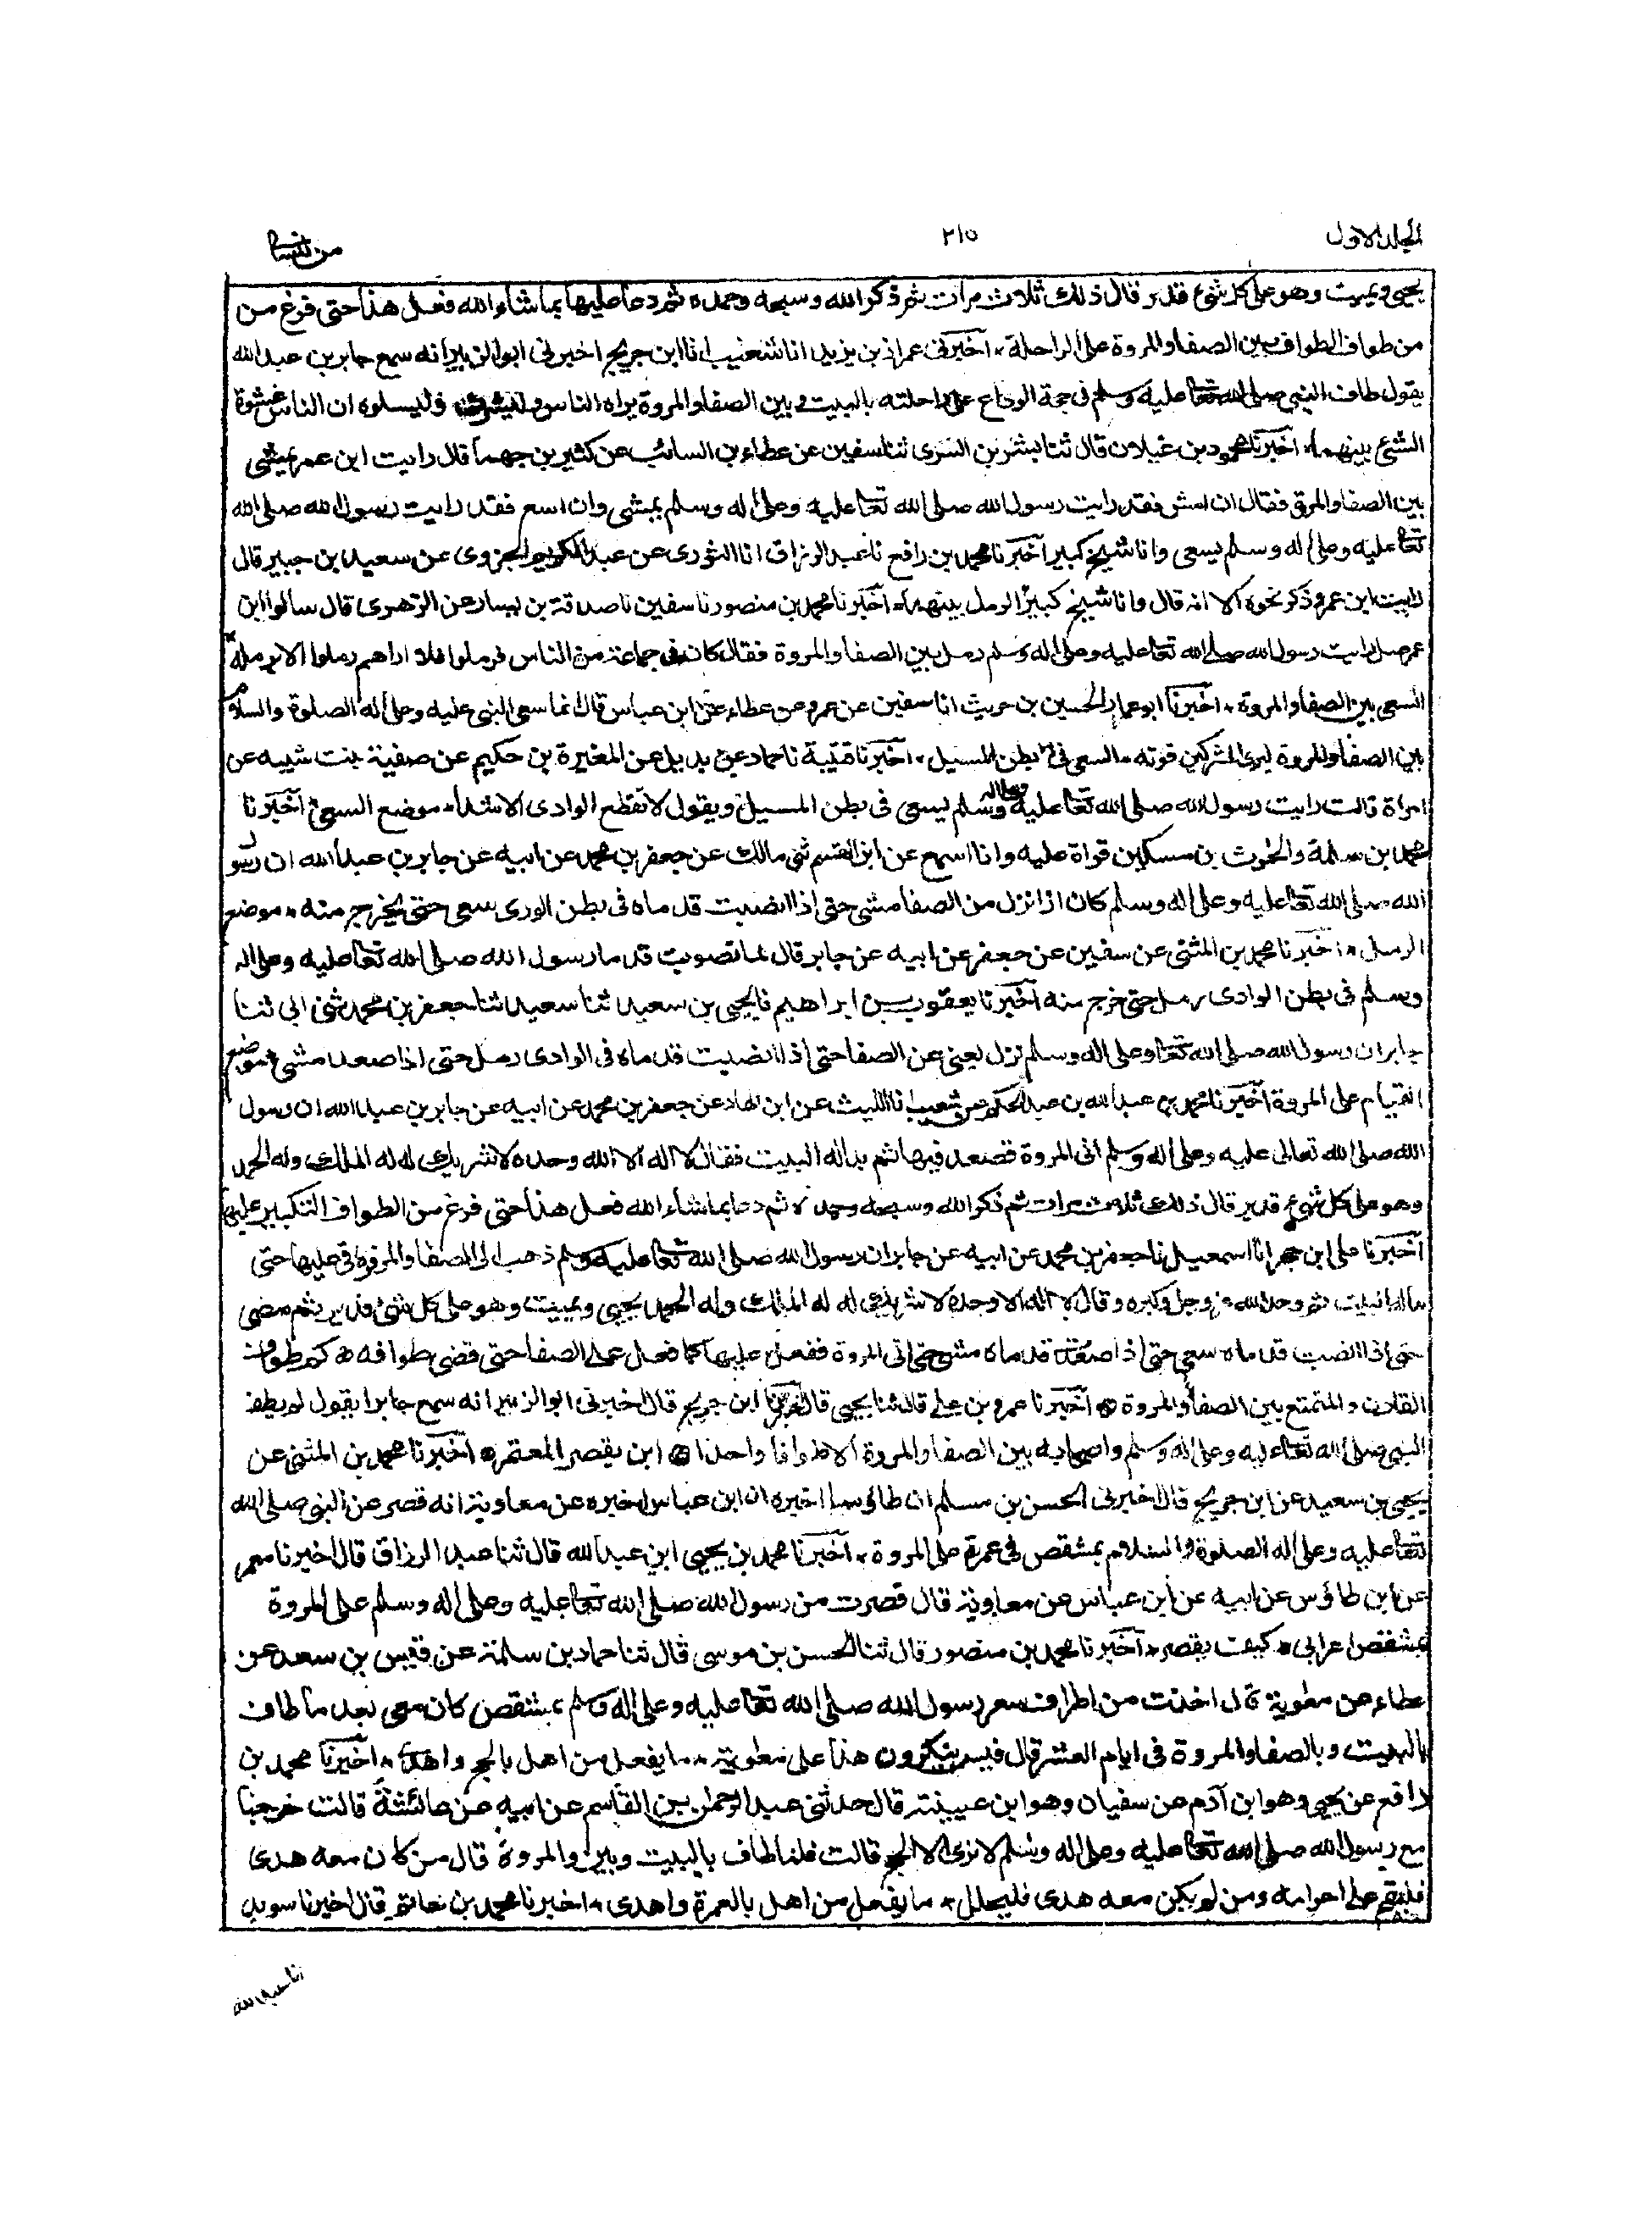 المجلد الاول
٢١٥
من النسائي
يحيى ويميت وهو على كل شيء قدير قال ذلك ثلاث مرات ثم ذكر الله وسبحه وحمده ثم دعا عليها بما شاء الله فعل هذا حتى فرغ من
من طواف الطواف بين الصفا والمروة على الراحلة ٭ اخبرنى عمران بن يزيد انا شعيب انا ابن جريج اخبرنى ابو الزبير انه سمع جابر بن عبد الله
يقول طاف النبى صلى الله تعا عليه وسلم فى حجة الوداع على راحلته بالبيت وبين الصفا والمروة يراه الناس وليشرف وليسلوه ان الناس غشوة
الشئ بينهما ٭ اخبرنا محمود بن غيلان قال ثنا بشر بن السرى ثنا سفين عن عطاء بن السائب عن كثير بن جهما قال رايت ابن عمر يمشى
بين الصفا والمروة فقال ان امش فقد رايت رسول الله صلى الله تعا عليه وعلى اله وسلم يمشى وان اسع فقد رايت رسول الله صلى الله
تعا عليه وعلى اله وسلم يسعى وانا شيخ كبير اخبرنا محمد بن رافع نا عبد الرزاق انا الثورى عن عبد الكريم الجزوى عن سعيد بن جبير قال
رايت ابن عمر وذكر نحوه الا انه قال وانا شيخ كبير الرمل بينهما ٭ اخبرنا محمد بن منصور نا سفين نا صدقة بن يسار عن الزهرى قال سالوا ابن
عمر هل رايت رسول الله صلى الله تعا عليه وعلى اله وسلم رمل بين الصفا والمروة فقال كان فى جماعة من الناس فرملوا فلا اراهم رملوا الا برمله
السعى بين الصفا والمروة ٭ اخبرنا ابو عمار الحسين بن حريث انا سفين عن عمرو عن عطاء عن ابن عباس قال انما سعى النبى عليه وعلى اله الصلوة والسلام
بين الصفا والمروة ليرى المشركين قوته ٭ السعى فى بطن المسيل ٭ اخبرنا قتيبة نا حماد عن بديل عن المغيرة بن حكيم عن صفية بنت شيبه عن
امراة قالت رايت رسول الله صلى الله تعا عليه وعلى اله وسلم يسعى فى بطن المسيل ويقول لا تقطع الوادى الا شدا ٭ موضع السعى اخبرنا
محمد بن سلمة والحرث بن مسكين قراة عليه وانا اسمع عن ابن القسم ثنى مالك عن جعفر بن محمد عن ابيه عن جابر بن عبد الله ان رسو
الله صلى الله تعا عليه وعلى اله وسلم كان اذا نزل من الصفا مشى حتى اذا انصبت قدماه فى بطن الورى سعى حتى يخرج منه ٭ موضع
الرمل ٭ اخبرنا محمد بن المثنى عن سفين عن جعفر عن ابيه عن جابر قال لما تصوبت قدما رسول الله صلى الله تعا عليه وعلى اله
وسلم فى بطن الوادى رمل حتى خرج منه اخبرنا يعقوب بن ابراهيم نا يحيى بن سعيد ثنا سعيد ثنا جعفر بن محمد ثنى ابى ثنا
جابر ان رسول الله صلى الله تعا وعلى اله وسلم نزل يعنى عن الصفا حتى اذا انصبت قدماه فى الوادى رمل حتى اذا صعد مشى موضع
القيام على المروة اخبرنا محمد بن عبد الله بن عبد الحكم عن شعيب انا الليث عن ابن الهاد عن جعفر بن محمد عن ابيه عن جابر بن عبد الله ان رسول
الله صلى الله تعالى عليه وعلى اله وسلم اتى المروة فصعد فيها ثم بدا له البيت فقال لا اله الا الله وحده لا شريك له له الملك وله الحمد
وهو على كل شئ قدير قال ذلك ثلاث مرات ثم ذكر الله وسبحه وحمده ثم دعا بما شاء الله فعل هذا حتى فرغ من الطواف التكبير عليها
اخبرنا على ابن حجر انا اسمعيل نا جعفر بن محمد عن ابيه عن جابر ان رسول الله صلى الله تعا عليه وسلم ذهب الى الصفا والمروة فرقى عليها حتى
بدا له البيت ثم وحد الله عز وجل وكبره وقال لا اله الا وحده لا شريك له له الملك وله الحمد يحيى ويميت وهو على كل شئ قدير ثم مضى
حتى اذا انصبت قدماه سعى حتى اذا صعدت قدماه مشى حتى اتى المروة ففعل عليها كما فعل على الصفا حتى قضى طوافه ٭ كم طواف
القارن والمتمتع بين الصفا والمروة ٭ اخبرنا عمرو بن على قال ثنا يحيى قال اخبرنا ابن جريج قال اخبرنى ابو الزبير انه سمع جابرا يقول لم يطف
النبى صلى الله تعا عليه وعلى اله وسلم واصحابه بين الصفا والمروة الا طوافا واحدا ٭ اين يقصر المعتمر ٭ اخبرنا محمد بن المثنى عن
يحيى بن سعيد عن ابن جريج قال اخبرنى الحسن بن مسلم ان طاوسا اخبره ان ابن عباس اخبره عن معاوية انه قصر عن النبى صلى الله
تعا عليه وعلى اله الصلوة والسلام بمشقص فى عمرة على المروة ٭ اخبرنا محمد بن يحيى ابن عبد الله قال ثنا عبد الرزاق قال اخبرنا معمر
عن ابن طاؤس عن ابيه عن ابن عباس عن معاوية قال قصرت من رسول الله صلى الله تعا عليه وعلى اله وسلم على المروة
بمشقص اعرابى ٭ كيف يقصر ٭ اخبرنا محمد بن منصور قال ثنا الحسن بن موسى قال ثنا حماد بن سلمة عن قيس بن سعد عن
عطاء عن معوية قال اخذت من اطراف سعر رسول الله صلى الله تعا عليه وعلى اله وسلم بمشقص كان معى بعد ما طاف
بالبيت وبالصفا والمروة فى ايام العشر قال قيس ينكرون هذا على معوية ٭ ما يفعل من اهل بالحج واهدى ٭ اخبرنا محمد بن
رافع عن يحيى وهو ابن آدم عن سفيان وهو ابن عيينة قال حدثنى عبد الرحمن بن القاسم عن ابيه عن عائشة قالت خرجنا
مع رسول الله صلى الله تعا عليه وعلى اله وسلم لا نرى الا الحج قالت فلما طاف بالبيت وبين والمروة قال من كان معه هدى
فليقم على احرامه ومن لم يكن معه هدى فليحلل ٭ ما يفعل من اهل بالعمرة واهدى ٭ اخبرنا محمد بن حاتم قال اخبرنا سويد
انا عبد الله